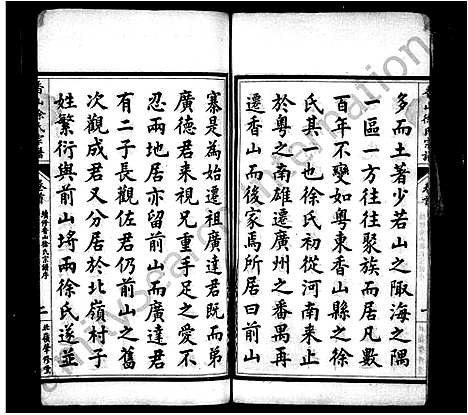 多而土著少若山之陬海之隅
一區一方往往聚族而居凡數
百年不變如粵東香山縣之徐
氏其一也徐氏初從河南來止
於粵之南雄遷廣州之番禺再
遷香山而後家焉所居曰前山
香山徐氏宗譜
卷首
續修香山徐氏宗譜序
二
北嶺華修堂
寨是為始遷祖廣達君既而弟
廣德君來視兄重手足之愛不
忍兩地居亦留前山而廣達君
有二子長觀佐君仍前山之舊
次觀成君又分居於北嶺村子
姓繁衍與前山埒兩徐氏遂並